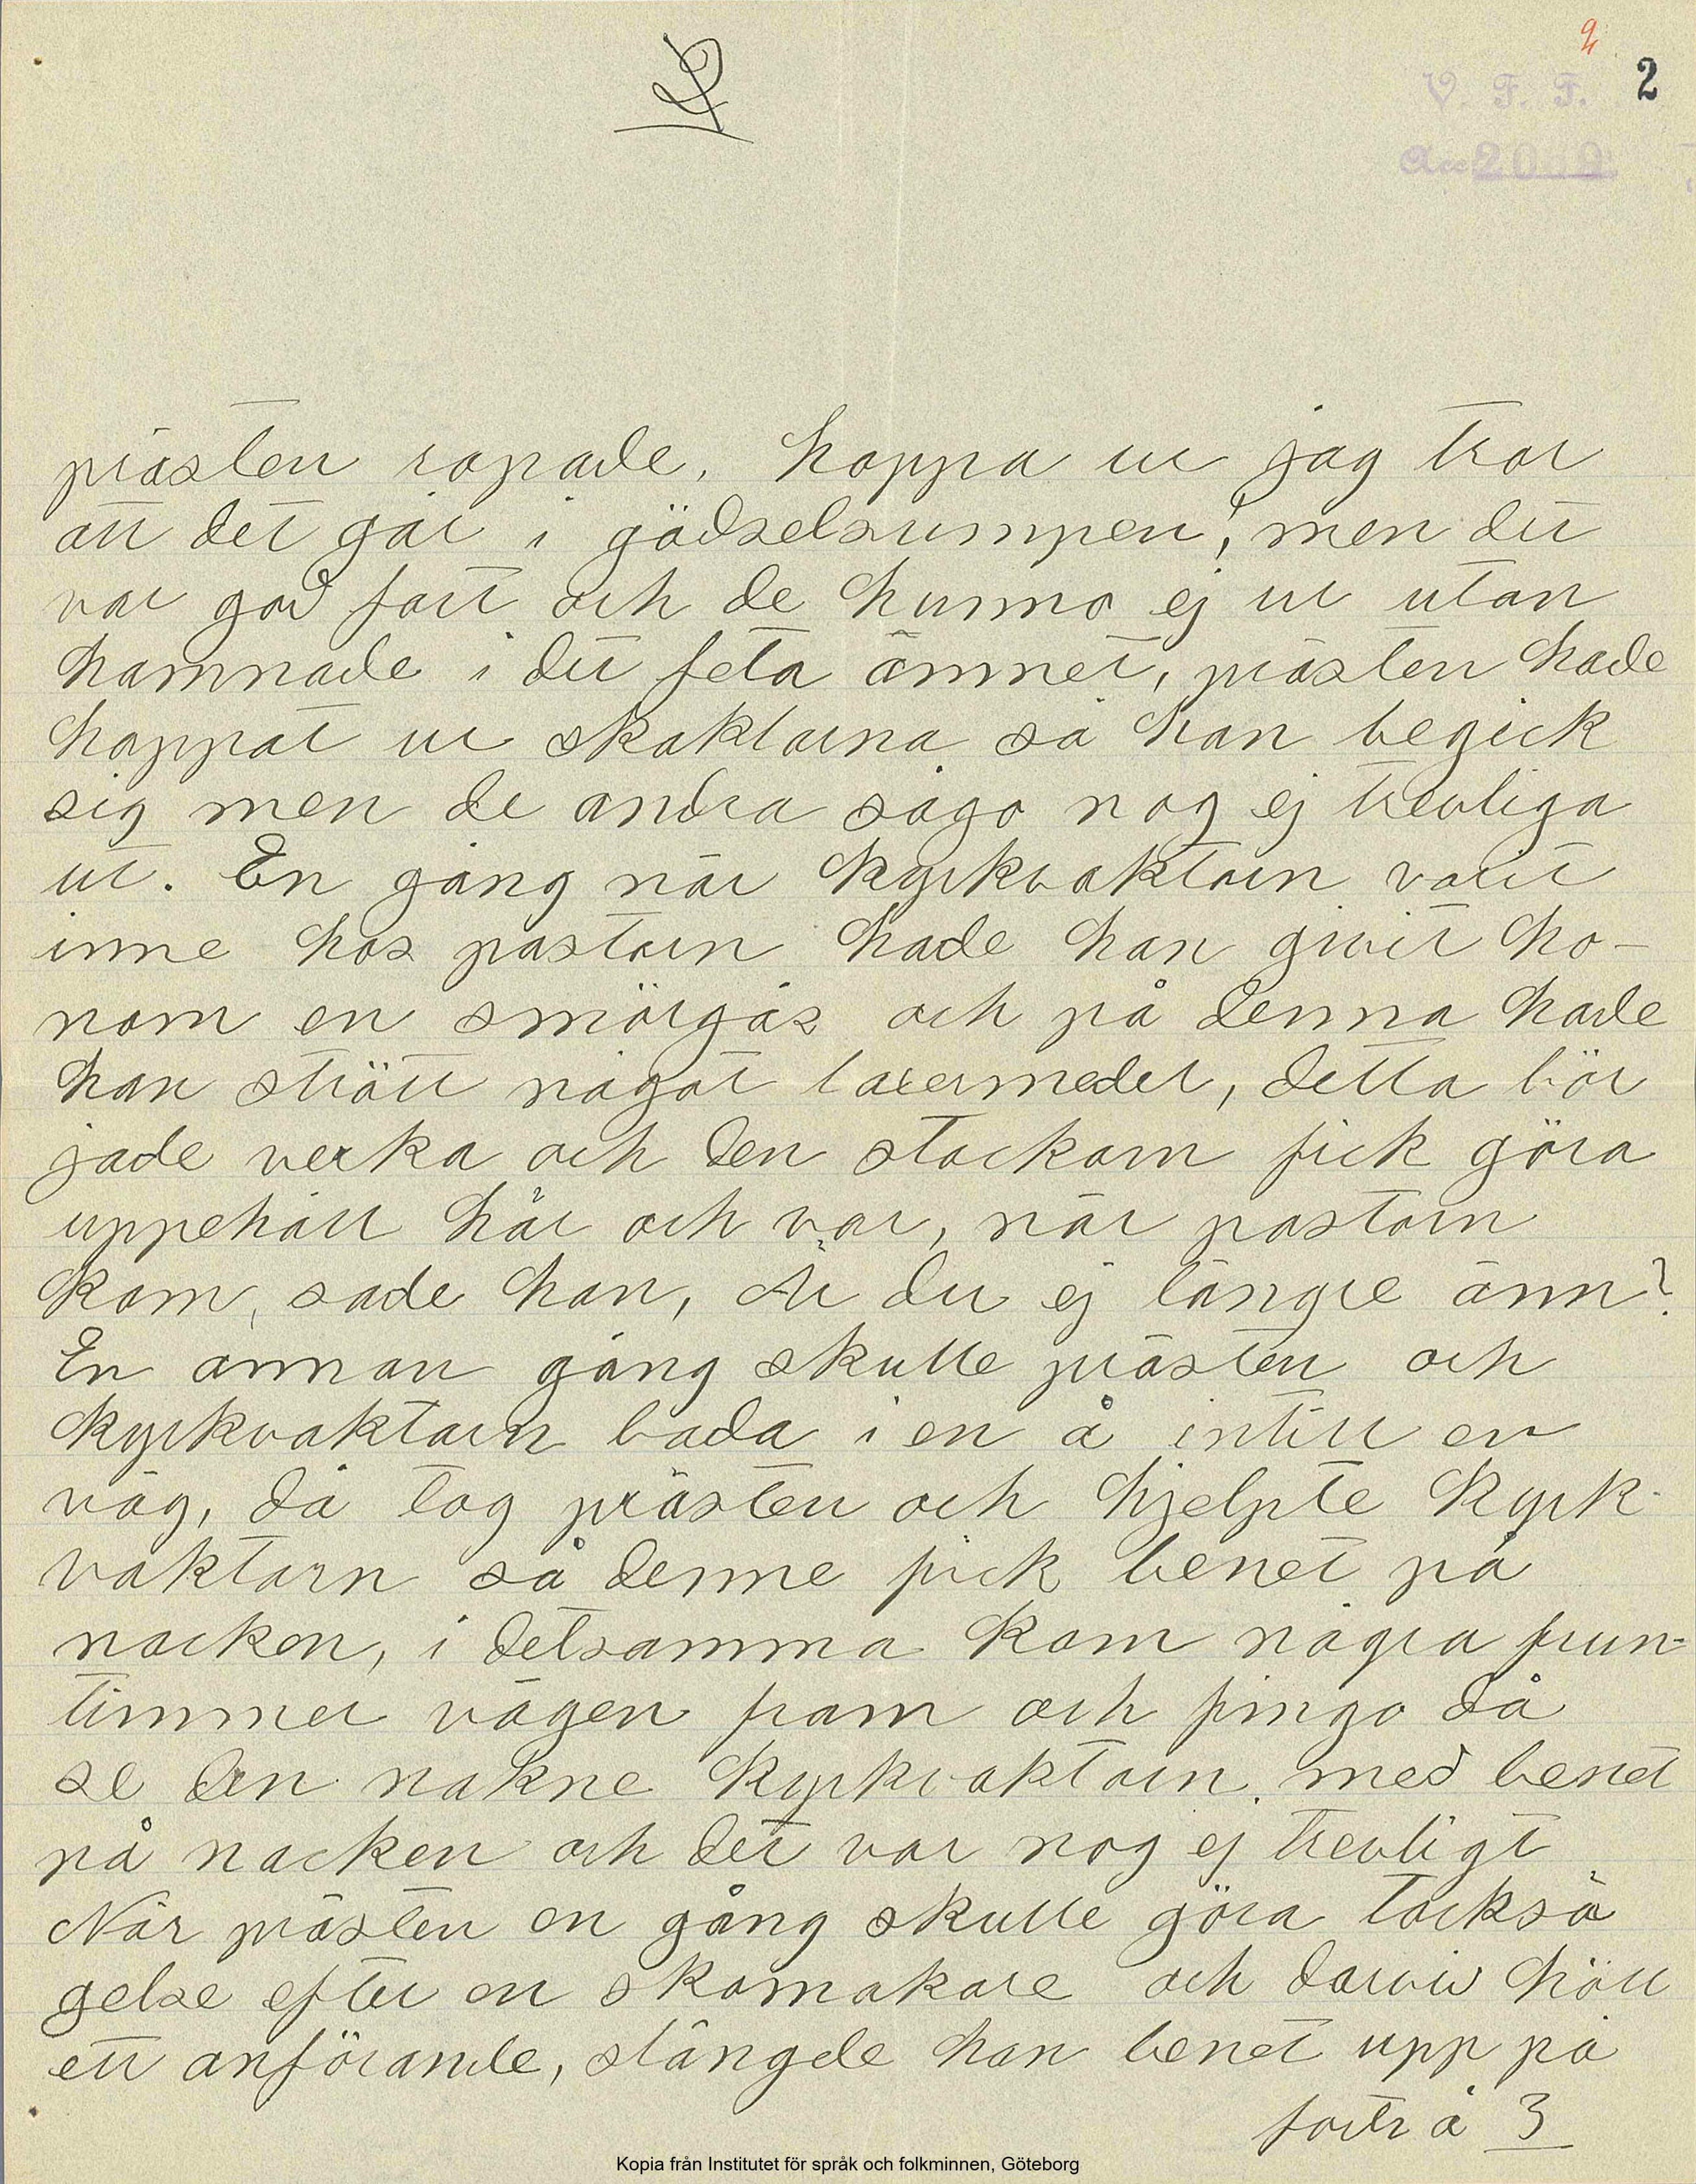 2
2
V. F. F. 2
Acc
prästen ropade, hoppa ur jag tror
att det går i gödselsumpen! men det
var god fart och de hunno ej ur utan
hamnade i det feta ämnet, prästen hade
hoppat ur skaktarna så han begick
sig men de andra sågo nog ej trevliga
ut. En gång när kyrkvaktarn varit
inne hos pastorn hade han givit ho-
nom en smörgås och på denna hade
han strött något laxermedel, detta bör
jade verka och den stackarn fick göra
uppehåll här och var, när pastorn
kom, sade han, Är du ej längre änn?
En annan gång skulle prästen och
kyrkvaktarn bada i en å intill en
väg, då tog prästen och hjelpte kyrk-
vaktarn så denne fick benet på
nacken, i detsamma kom några frun-
timmer vägen fram och fingo då
se den nakne kyrkvaktarn med benet
på nacken och det var nog ej trevligt
När prästen en gång skulle göra tacksä
gelse efter en skomakare och därvid höll
ett anförande, slängde han benet upp på
forts å 3
Kopia från Institutet för språk och folkminnen, Göteborg